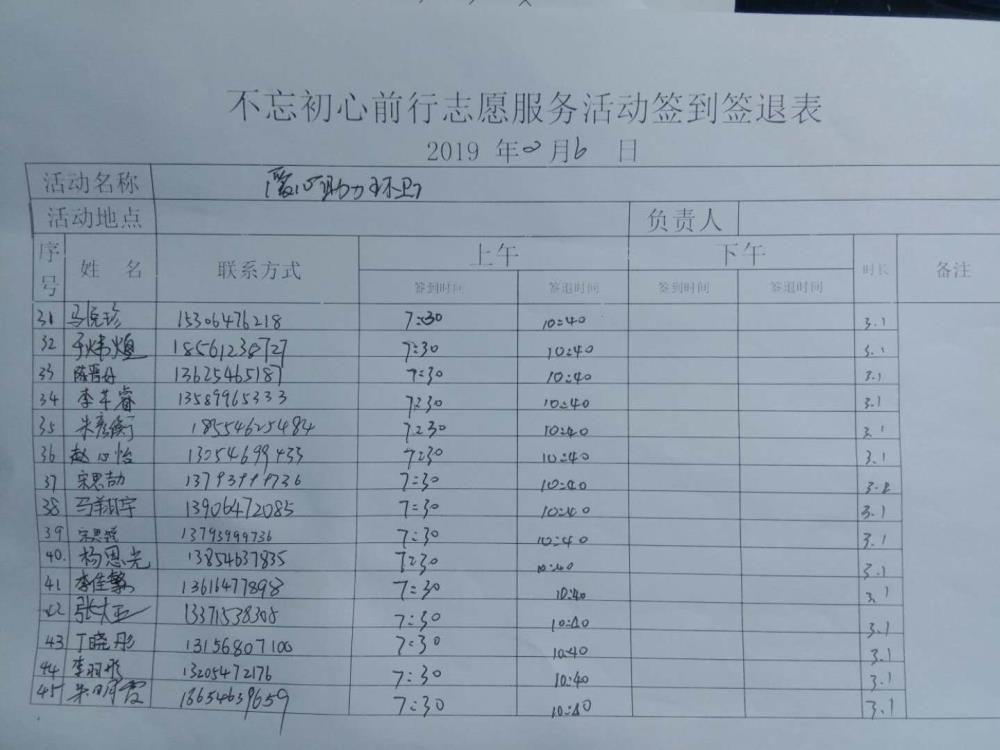 不忘初心前行志愿服务活动签到签退表
2019 年 月6 日
活动名称 爱心助力环卫
活动地点 负责人
序号 姓 名 联系方式 上午 下午 时长 备注
签到时间 签退时间 签到时间 签退时间
31 15306476218 7:30 10:40 3.1
32 于炜煊 18561238727 7:30 10:40 3.1
33 13625465187 7:30 10:40 3.1
34 13589965333 7:30 10:40 3.1
35 朱彦衡 18554625484 7:30 10:40 3.1
36 赵心怡 13054699433 7:30 10:40 3.1
37 宋思劼 13793999736 7:30 10:40
38 马翔宇 13906472085 7:30 10:40 3.1
39 13793999736 7:30 10:40 3.1
40. 杨恩光 13854637835 7:30 10:40 3.1
41 李佳 13616477898 7:30 10:40 3.1
42 张大 13371538308 7:30 10:40 3.1
43 丁晓彤 13156807100 7:30 10:40 3.1
44 李羽彤 13205472176 7:30 10:40 3.1
45 朱明霞 13654639659 7:30 10:40 3.1